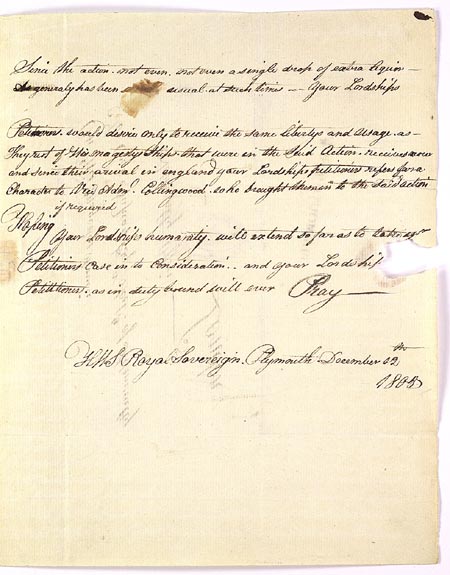 Since the action. not even. not even a single drop of extra liquor —
As generaly has been usual. at such times — your Lordships
Petitioners. would desire only to receive the same libertys and usage. as
They rest of His majesty Ships that were in the Said Action. receives now
and since their arrival in england your Lordships petitioners refers for a
Character to Vice Adm^l. Collingwood. who brought them in to the Said action
if required
Hopeing
Your Lordships humanity. will extend so far as to take your
Petitioners Case in to Consideration . . and your Lordship
Petitioners. as in duty bound will ever Pray —
H.M.S. Royal Sovereign. Plymouth. December 12 th
1805